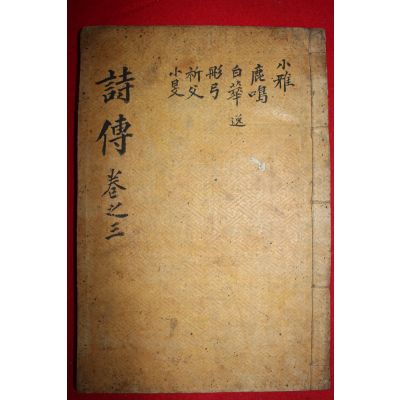 小雅
鹿鳴
白華
彤弓
祈父
小旻
詩傳 卷之三